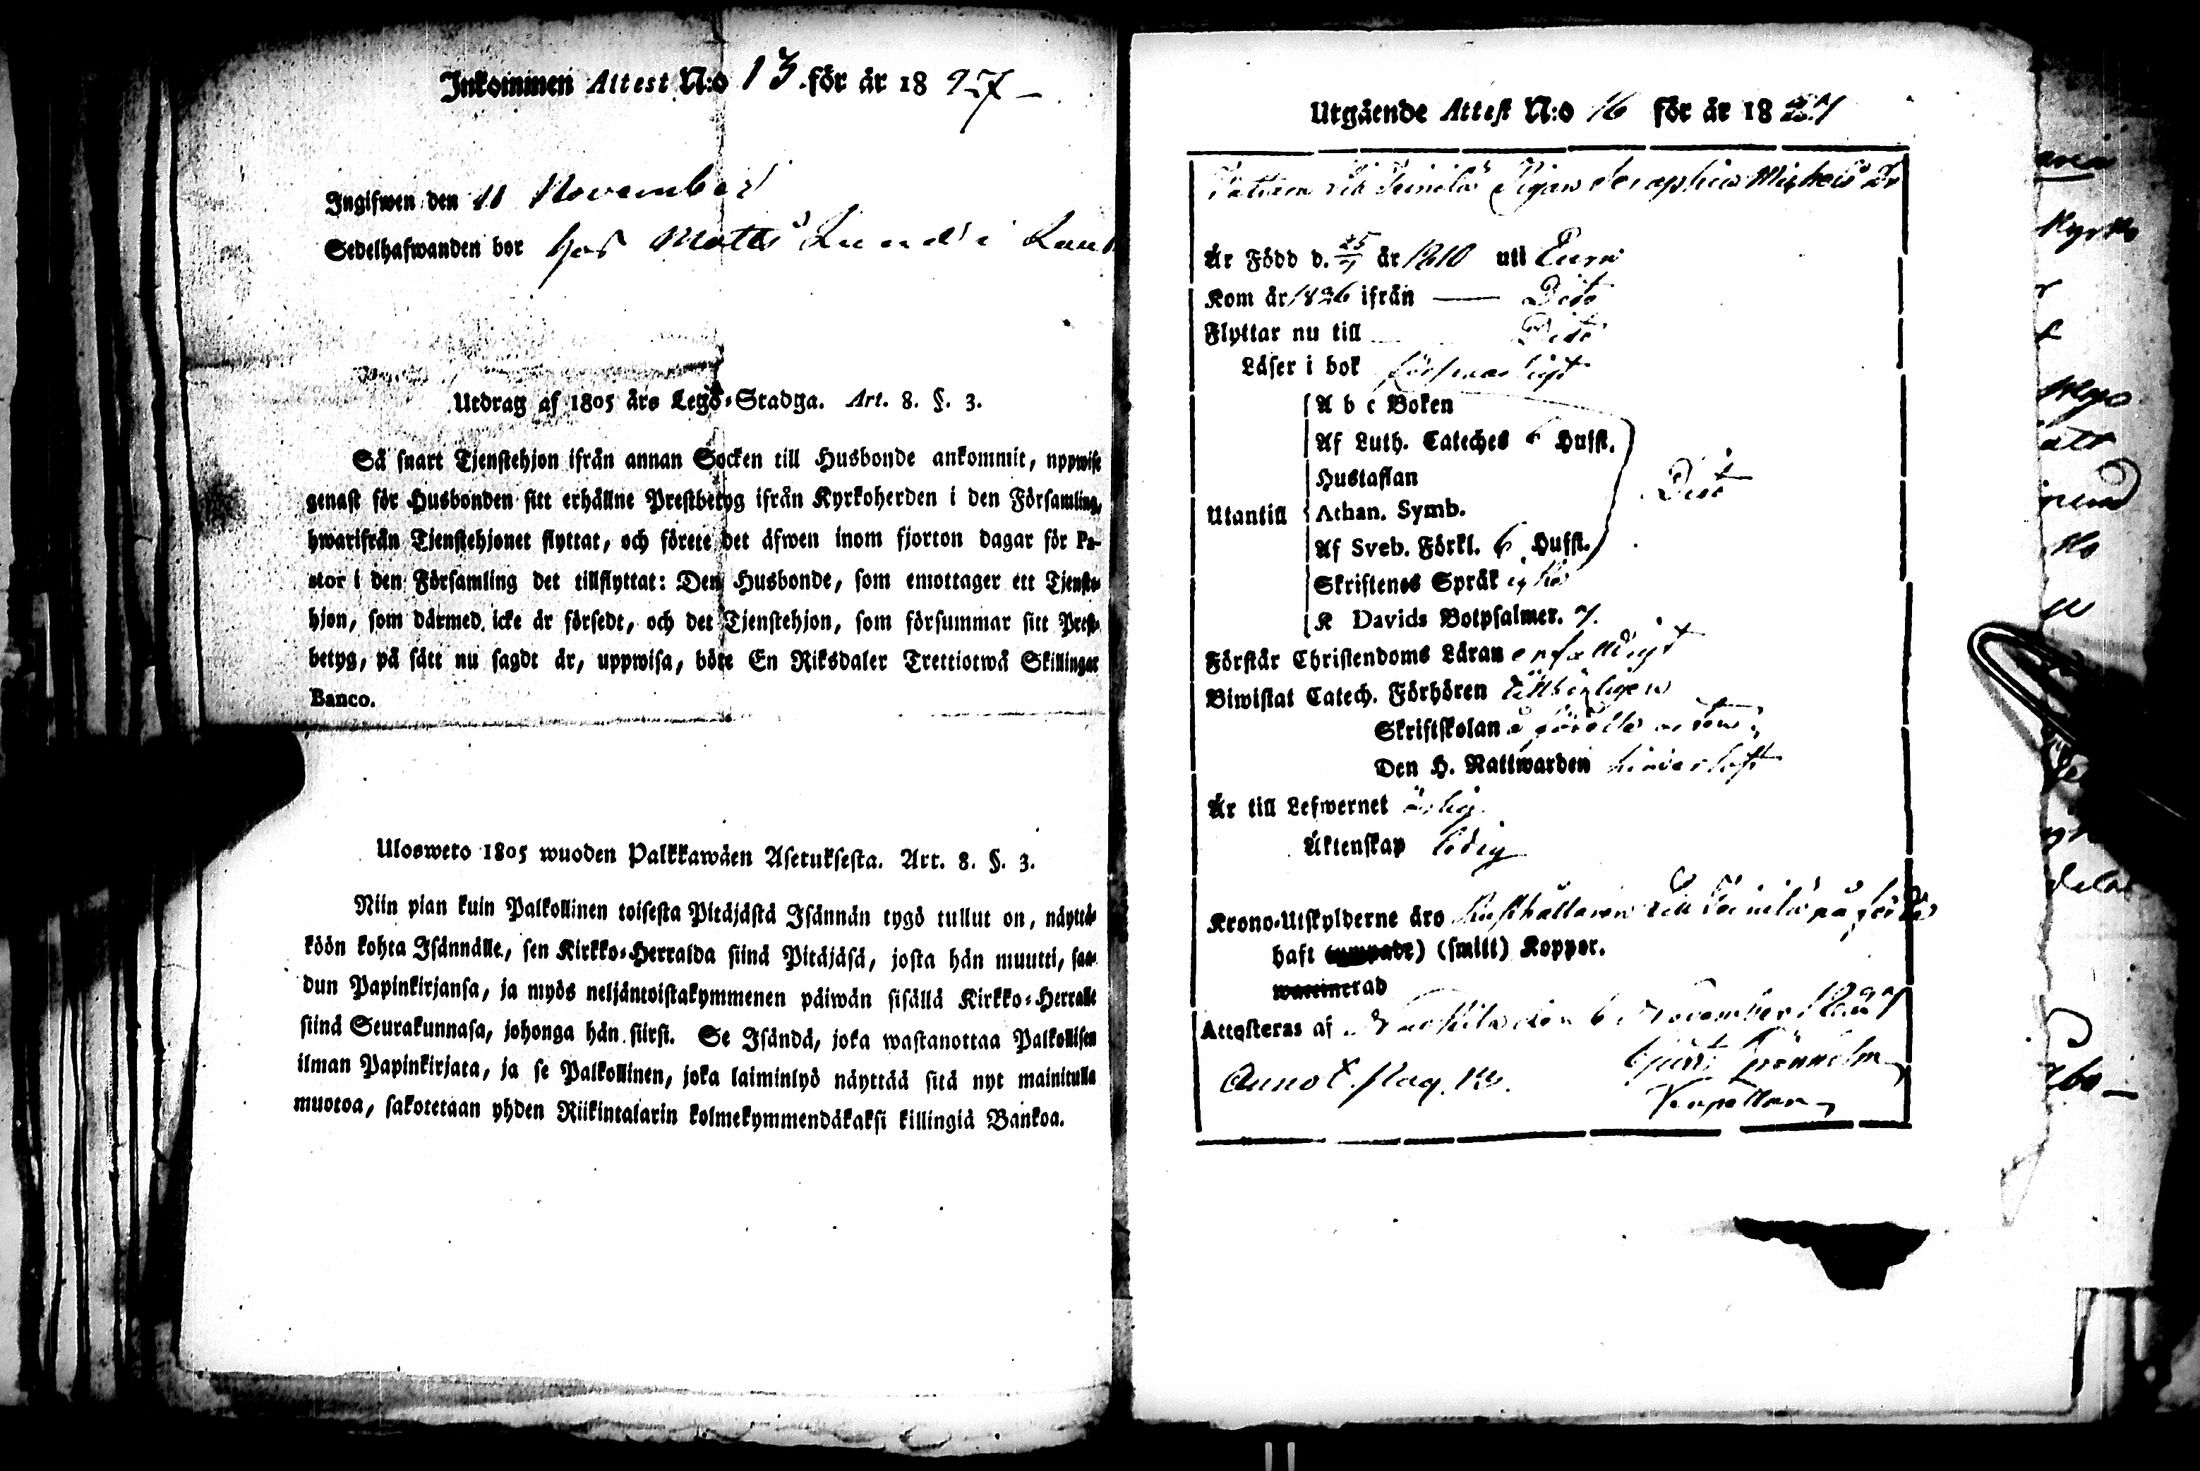 Inkommen Attest N:o 13 för år 1827
Ingifwen den 11 November
Sedelhafwanden bor hos Matts Lund i
Utdrag af 1805 års Lego-Stadga. Art. 8. §. 3.
Så snart Tjenstehjon ifrån annan Socken till Husbonde ankommit, uppwise
genast för Husbonden sitt erhållne Prestbetyg ifrån Kyrkoherden i den Församling,
hwarifrån Tjenstehjonet flyttat, och förete det äfwen inom fjorton dagar för Pa-
stor i den Församling det tillflyttat: Den Husbonde, som emottager ett Tjenste-
hjon, som därmed icke är försedt, och det Tjenstehjon, som försummar sitt Prest-
betyg, på sätt nu sagdt är, uppwisa, böte En Riksdaler Trettiotwå Skillingar
Banco.
Ulosweto 1805 wuoden Palkkawäen Asetuksesta. Art. 8. §. 3.
Niin pian kuin Palkollinen toisesta Pitäjästä Isännän tygö tullut on, näyttä-
köön kohta Isännälle, sen Kirkko-Herralda siinä Pitäjäsä, josta hän muutti, saa-
dun Papinkirjansa, ja myös neljäntoistakymmenen päiwän sisällä Kirkko-Herralle
siinä Seurakunnasa, johonga hän siirsi. Se Isändä, joka wastanottaa Palkollisen
ilman Papinkirjata, ja se Palkollinen, joka laiminlyö näyttää sitä nyt mainitulla
muotoa, sakotetaan yhden Riikintalarin kolmekymmendäkaksi killingiä Bankoa.
Utgående Attest N:o 16 för år 1827
Pigan Seraphia Michels Dr
Är Född d. 25/7 år 1810 uti Eura
Kom år 1826 ifrån — Dito
Flyttar nu till Dito
Läser i bok försvarligt
A b c Boken
Af Luth. Cateches 6 Hufst.
Hustaflan
Utantill Athan. Symb. Dito
Af Sveb. Förkl. 6 Hufst.
Skriftenes Språk
K Davids Botpsalmer. 7.
Förstår Christendoms Läran enfaldigt
Biwistat Catech. Förhören tillbörligen
Skriftskolan
Den H. Nattwarden
Är till Lefwernet ärlig
Äktenskap ledig
Krono-Utskylderne äro Rusthållaren på
haft (smitt) Koppor.
Attesteras af den 6 November 1827
Grönholm
Annot. pag.
Kapellan